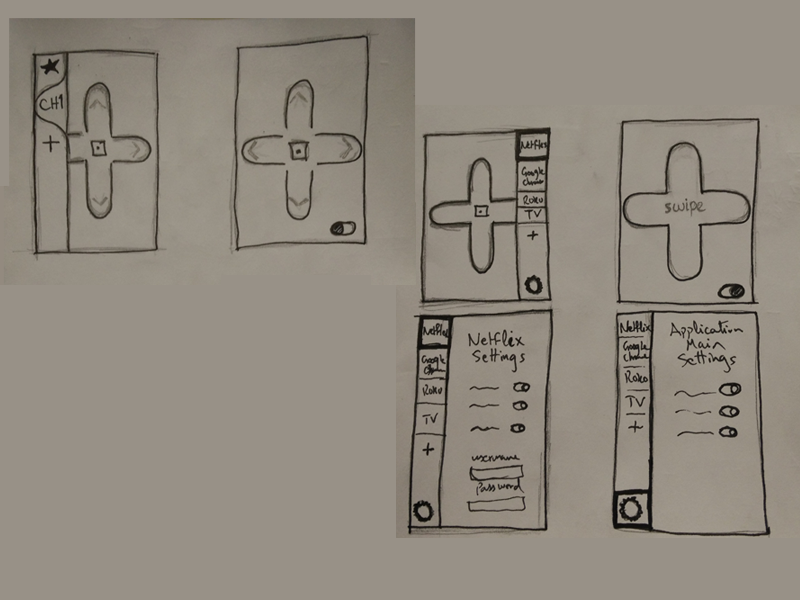 CH1
+
Netflix
Google
Chrome
Roku
TV
+
swipe
Netflix
Google
Chrome
Roku
TV
+
Netflix
Settings
username
Password
Netflix
Google
Chrome
Roku
TV
+
Application
Main
Settings